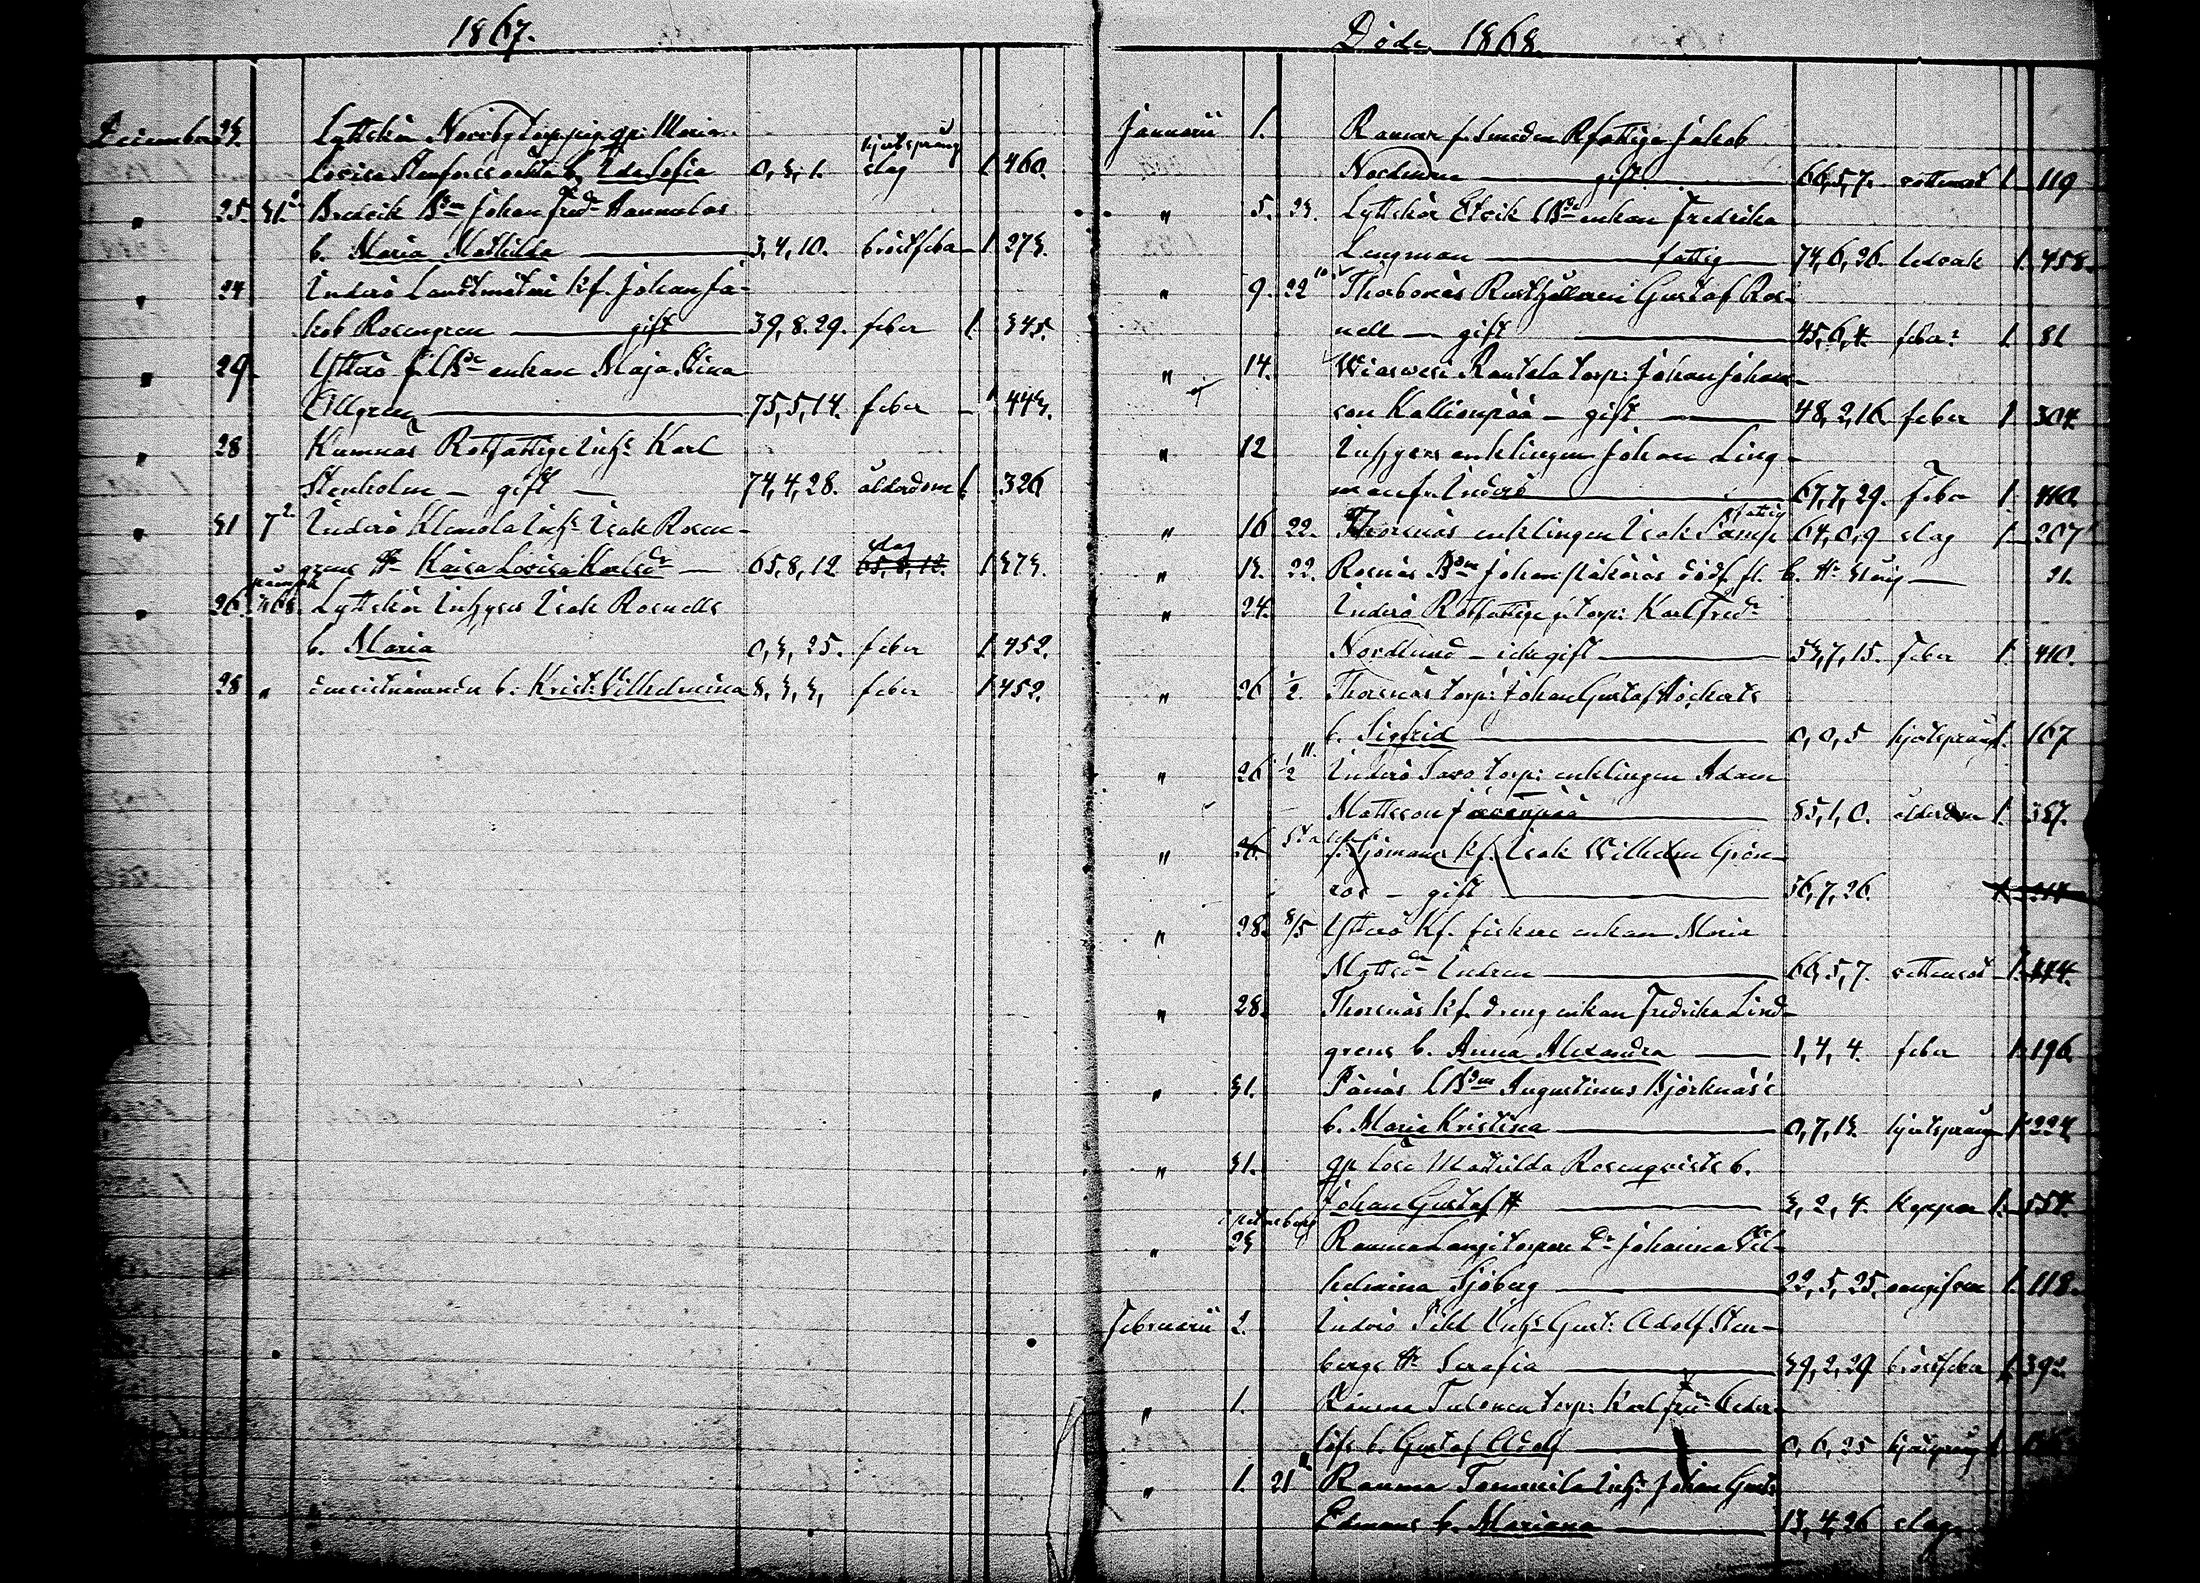 1867.
December 23. Lyttskär Norrby torp. pig. qp. Maria
Lovisa Renfors oäkta b. Ida Sofia 0, 3, 1. hjertsprång slag 1 460.
" 25. Bredvik Bdm Johan Fredr
b. Maria Mathilda 3, 4, 10. bröstfeber 1 273.
" 24 Inderö Landtmätare Kf. Johan Ja-
kob Rosengren gift 39, 8. 29. feber 1 345.
" 29. Ytterö enkan Maja Stina
Ellgren 75, 5, 14. feber 1 443.
" 28 Kumnäs Rotfattige Inhs Karl
Stenholm — gift — 74, 4, 28. ålderdom 1 326
" 31 Inderö Klemola Inhs Isak Rosen-
grens Hr Kaisa Lovisa Karlsdr 65, 8, 12 slag 1 373.
" 26. Lyttskär Inhyses Isak Rosnells
b. Maria 0, 3, 25. feber 1 452.
28 " b. Krist: Vilhelmina 8, 3, 3, feber 1 452.
Döde 1868.
Januarii 1. Raumar f. Smeden Rfattige Jakob
Nordman gift 66, 5, 7. vattensot 1 119
" 5. 23. Lyttskär enkan Fredrika
Lingman fattig 74, 6, 26. 1. 458.
" 9. 22 Thorsnäs Rusthållaren Gustaf Ros-
nell — gift 45, 6, 4. feber 1 81
" 14. Wiasvesi Rantala torp: Johan Johan-
son Kallionpää — gift 48, 2, 16. feber 1 304
" 12 Inhyses enklingen Johan Ling-
man fr. Inderö 67, 7, 29. Feber 1 410.
" 16 22. Thorsnäs enklingen Isak Lamp fattig 64, 0, 9 slag 1 207
" 13. 22. Rosnäs Bdm Johan dödf. fl. b. 21.
" 24. Inderö Rotfattige f. torp: Karl Fredr
Nordlund — icke gift 53, 7, 15. Feber 1 410.
" 26 ½ Thorsnäs torp: Johan Gustaf Höckerts
b. Sigfrid 0, 0, 5 hjertsprång 1. 167
" 26 ½ Inderö Tavo torp: enklingen Adam
Mattsson Järvenpää 85, 1, 0. ålderdom 1 387.
" 26. Kf. Isak Wilhelm Grön-
ros — gift 56, 7, 26.
" 28. 8/5 Ytterö Kf. fiskare enkan Maria
Mattsdr Indren 66, 5, 7. vattensot 1. 444.
" 28. Thorsnäs Kf. dreng enkan Fredrika Lind-
grens b. Anna Alexandra 1, 4, 4. feber 1. 196
" 31. Pänäs LBdm Augustinus Björknäs's
b. Maria Kristina 0, 7, 13. hjertsprång 1. 224
" 31. qp. lösa Mathilda Rosenqvists b.
Johan Gustaf 3, 2, 4. Koppor 1. 554.
" 23 Petersburg Raumar Lampi torpare Dr Johanna Vil-
helmina Sjöberg 22, 5, 25. oangifven 1. 118.
Februarii 2. Inderö Pihl Inhs Gust: Adolf Sten-
bergs Hr Serafia 39, 2, 29 bröstfeber 1 392.
" 1. Rauma Tulonen torp: Karl Fredr Ceder-
löfs b. Gustaf Adolf 0, 6, 25 hjertsprång 1.
" 1. 21 Rauma Tommila Inhs Johan Gust:
Edmans b. Mariana 13, 4, 26 slag